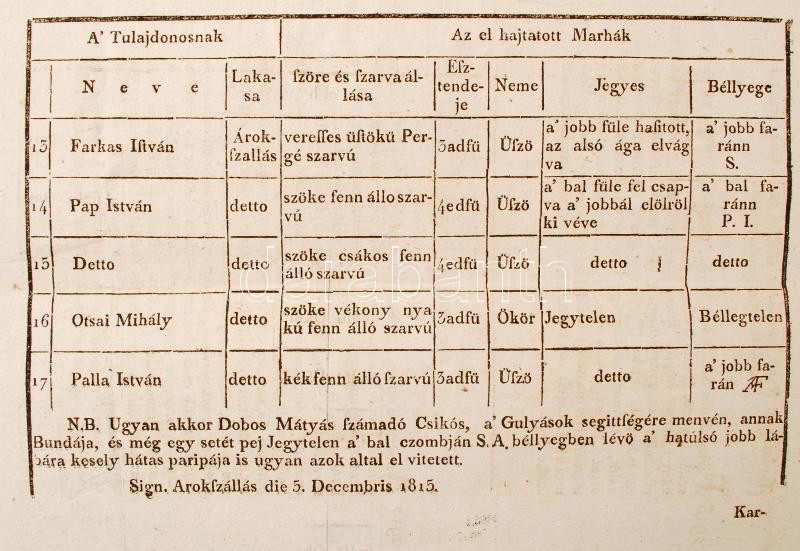 A’ Tulajdonosnak Az el hajtatott Marhák
Neve Laka-sa ſzöre és ſzarva ál-lása Eſz-tende-je Neme Jegyes Béllyege
13 Farkas Iſtván Árok-ſzallás vereſſes üſtökü Per-gé szarvú 3adfü Üſzö a’ jobb füle haſitott, az alsó ága elvág va a’ jobb fa-ránn S.
14 Pap István detto szöke fenn állo szar-vú 4edfü Üſzö a’ bal füle fel csap-va a’ jobbál elölröl ki véve a’ bal fa-ránn P. I.
15 Detto detto szöke csákos fenn álló szarvú 4edfü Üſzö detto detto
16 Otsai Mihály detto szöke vékony nya kú fenn álló szarvú 3adfü Ökör Jegytelen Béllegtelen
17 Palla István detto kék fenn álló ſzarvú 3adfü Üſzö detto a’ jobb fa-rán
N.B. Ugyan akkor Dobos Mátyás ſzámadó Csikós, a’ Gulyások segittſégére menvén, annak
Bundája, és még egy setét pej Jegytelen a’ bal czombján S. A. béllyegben lévö a’ hatúlsó jobb lá-
bára kesely hátas paripája is ugyan azok altal el vitetett.
Sign. Arokſzállás die 5. Decembris 1815.
Kar-
darabanth